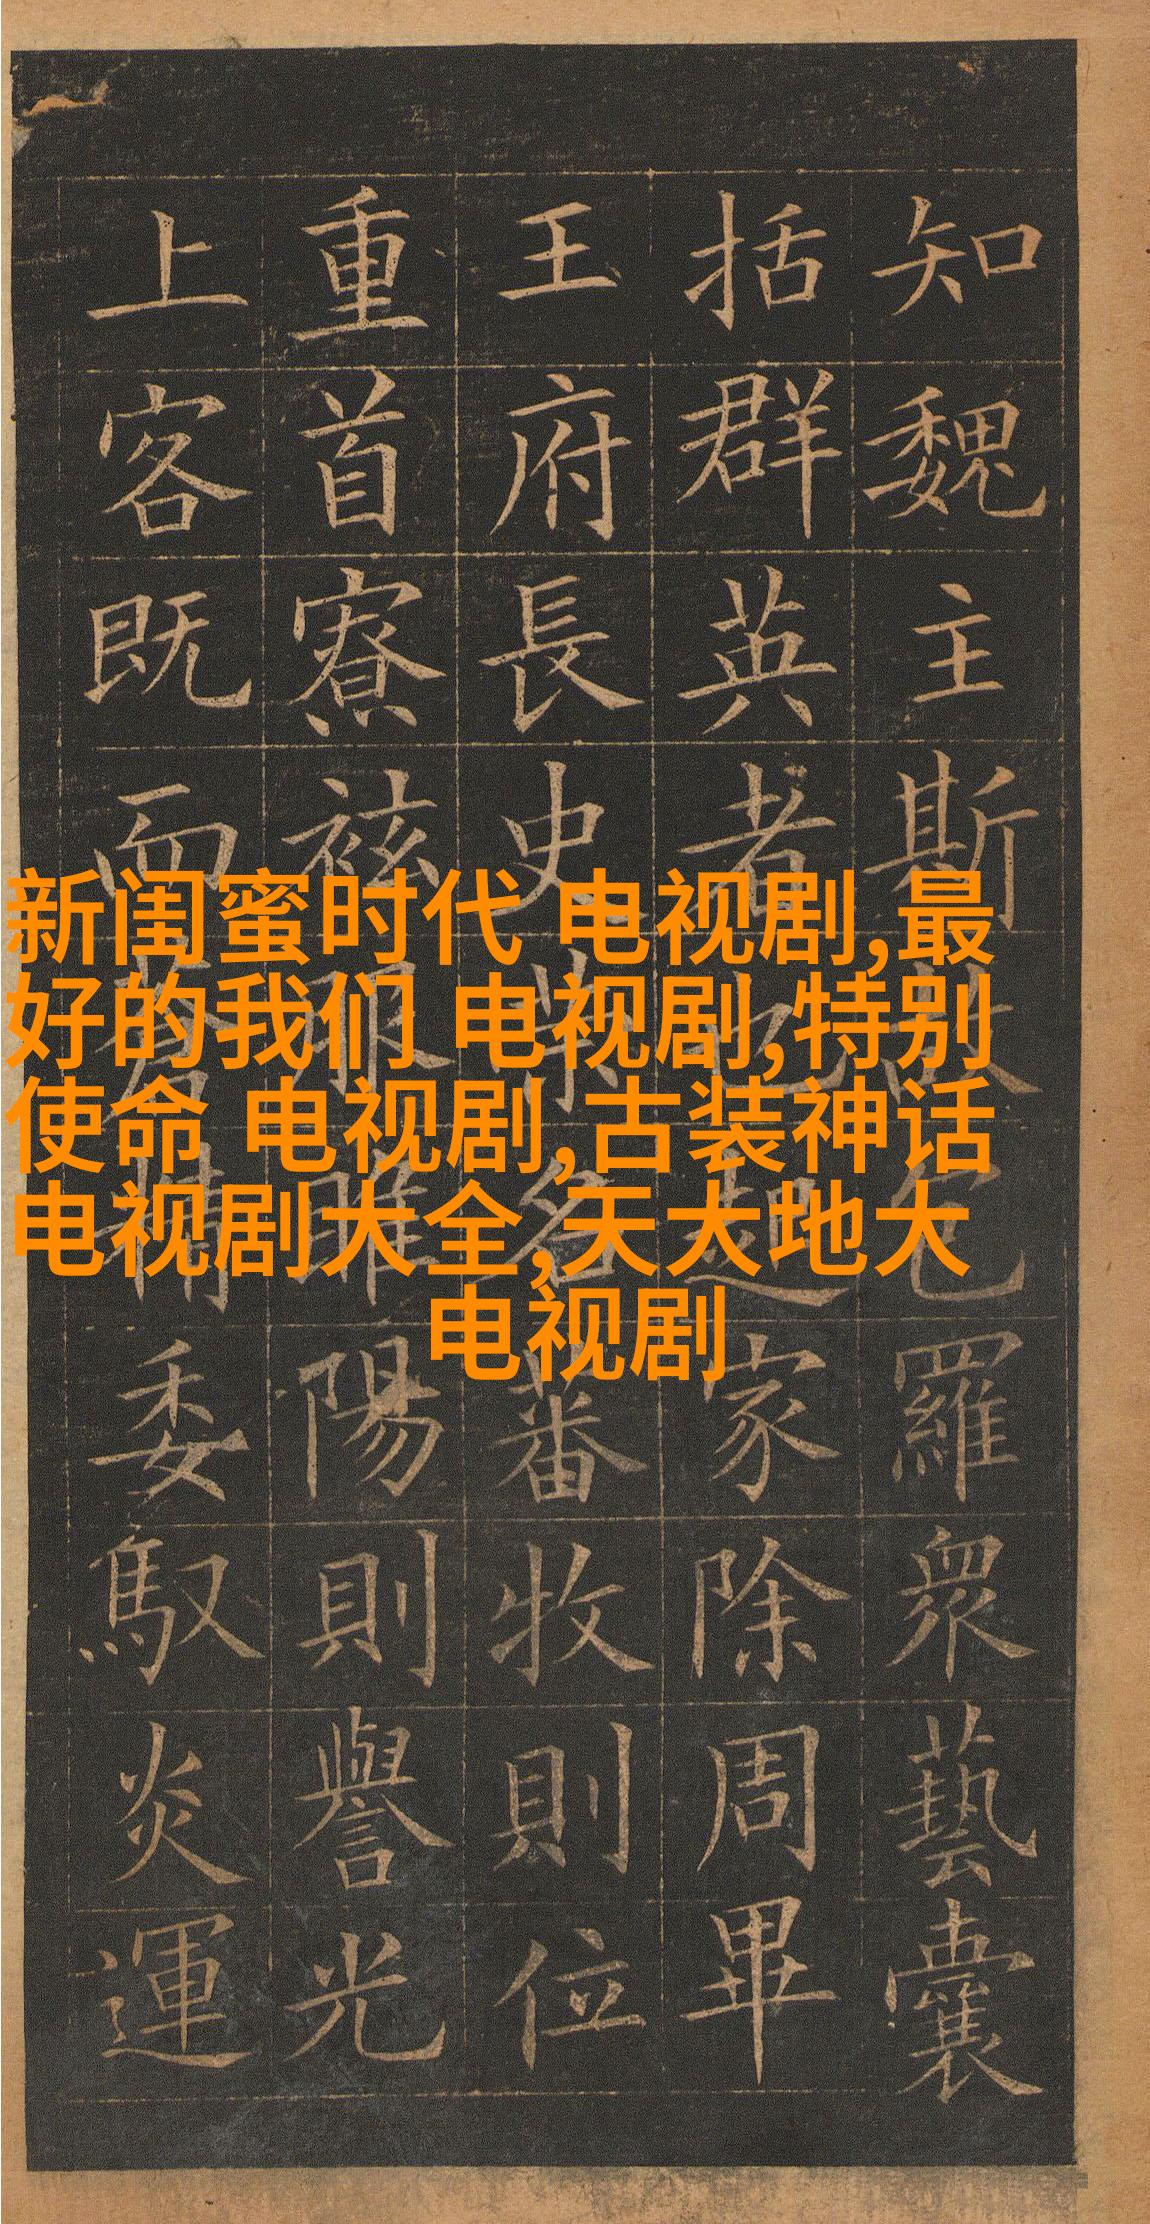 新闺蜜时代 电视剧,最
好的我们 电视剧,特别
使命 电视剧,古装神话
电视剧大全,天大地大
电视剧
知魏主斯故包羅眾藝囊
括群英者也起家除周畢
王府長史策名蕃牧則位
重首寮袨服睢陽則譽光
上客既而蒼精委馭炎運